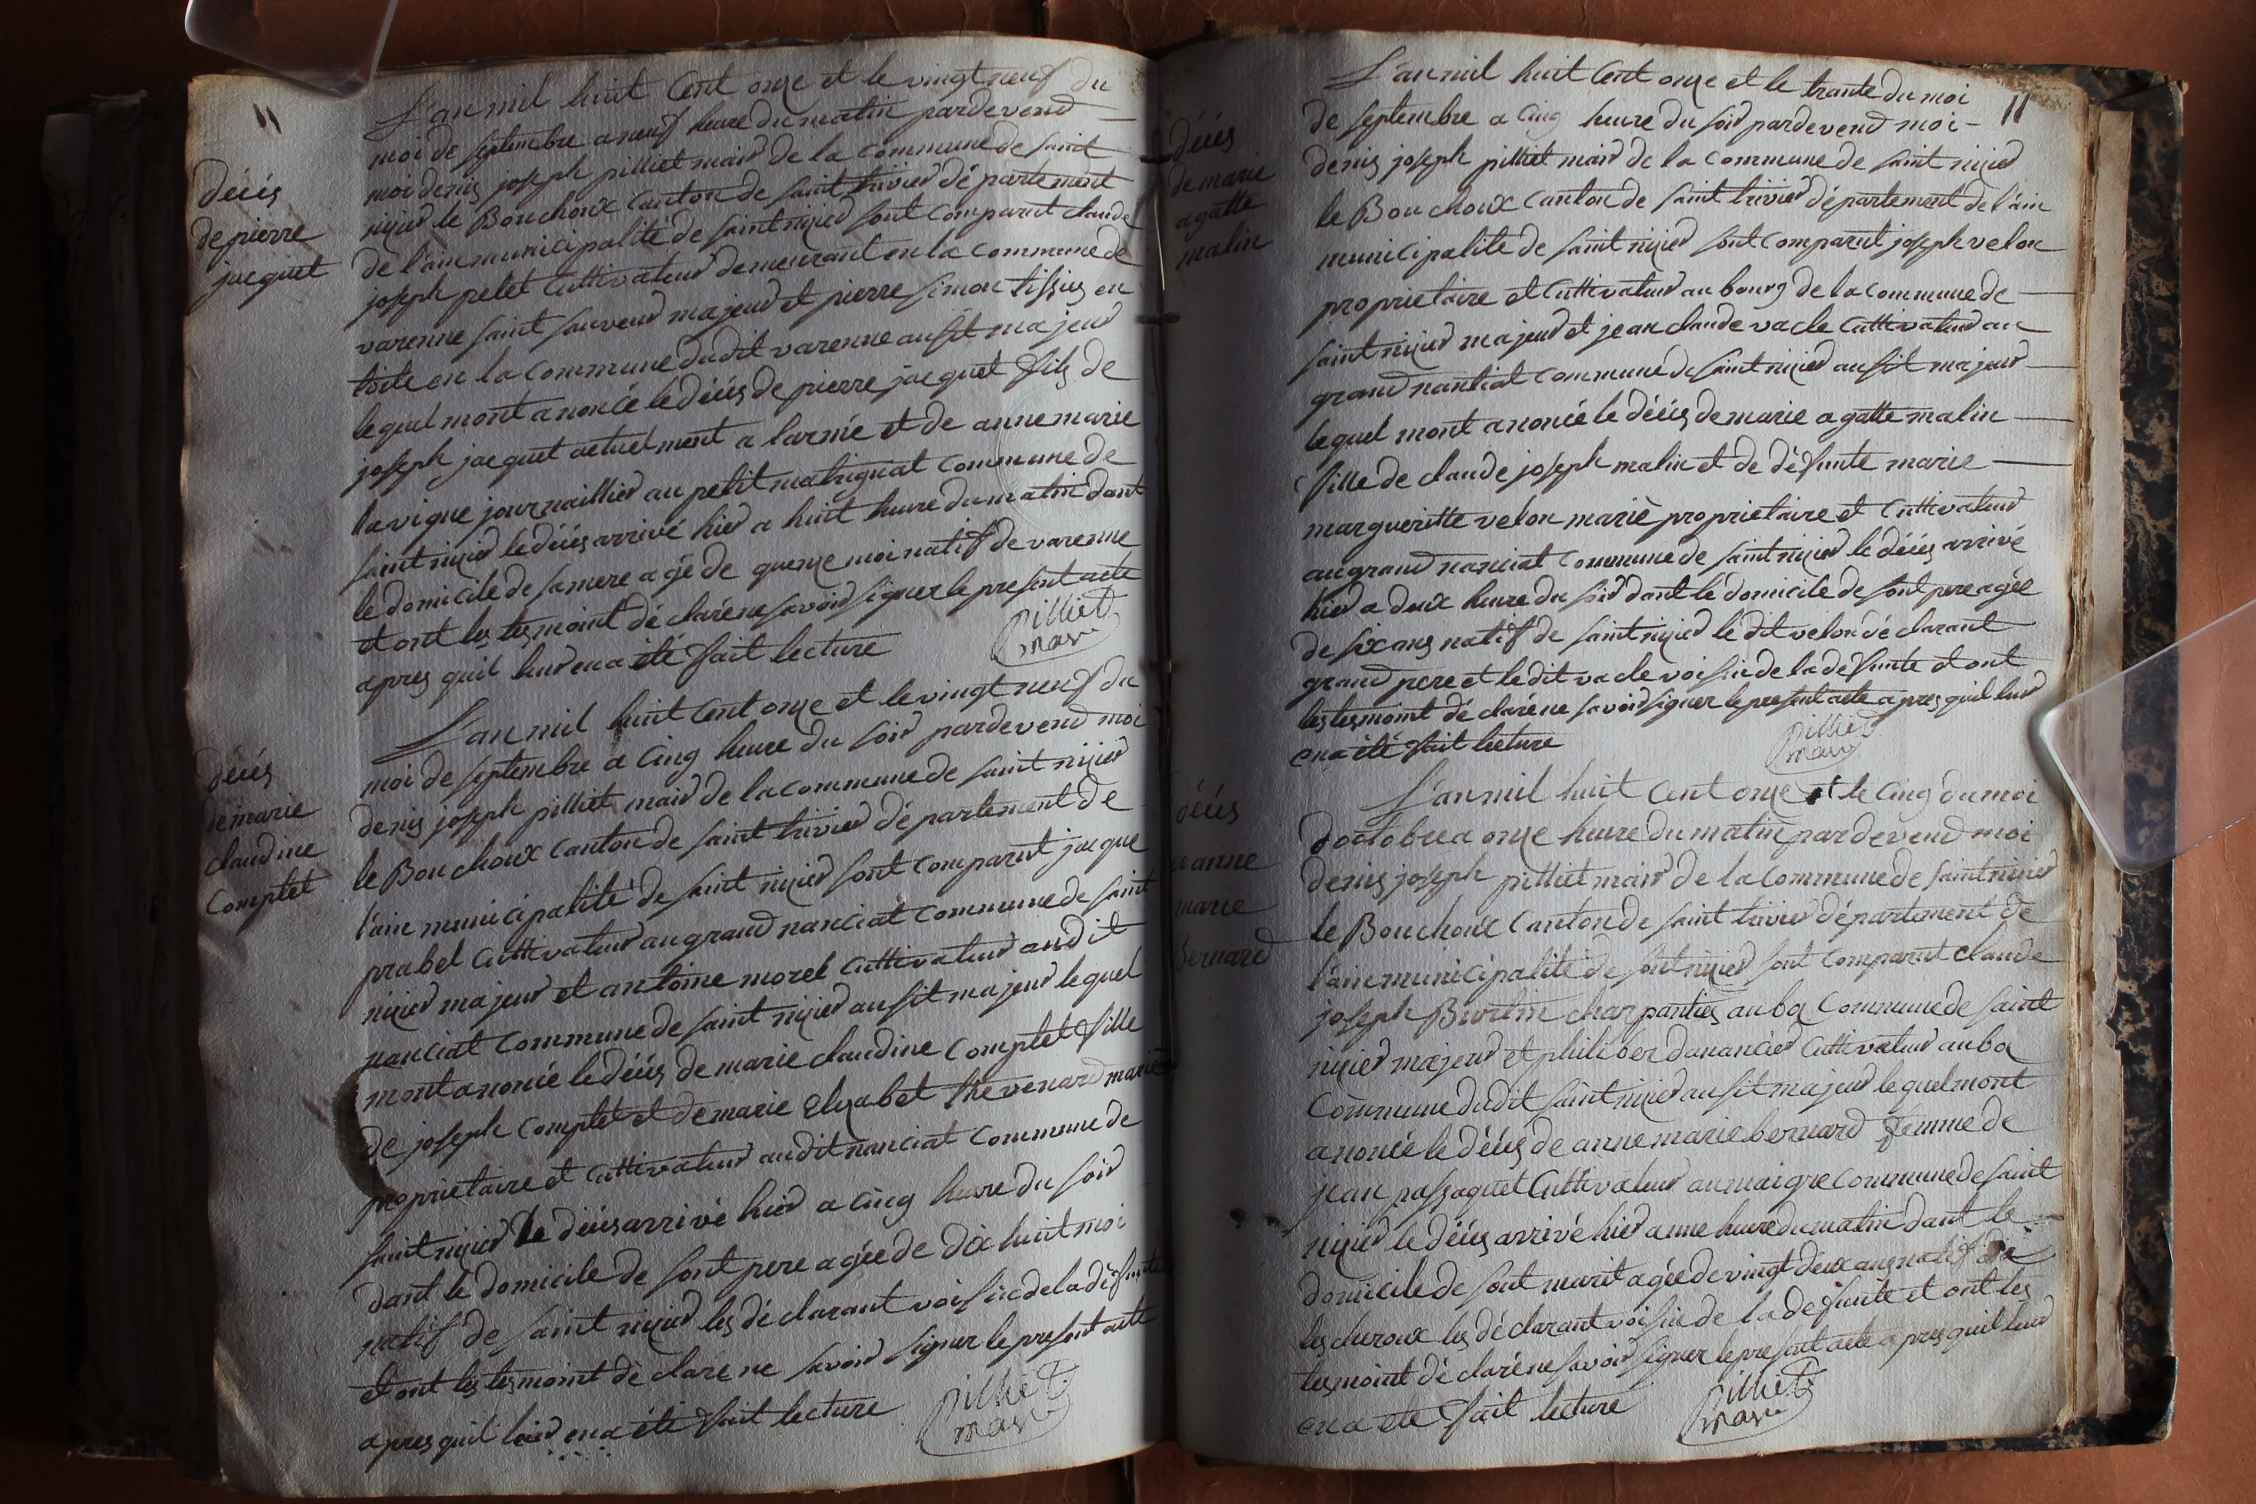 11
décés
de pierre
jacquet
L'an mil huit Cent onze et le vingt neuf du
moi de septembre a neuf heure du matin pardevend
moi denis joseph pilliet mair de la commune de saint
nizier le Bouchoux Canton de saint trivier département
de l'ain municipalité de saint nizier sont comparut claude
joseph pelet Cultivateur demeurant en la commune de
varenne saint sauveur majeur et pierre simon tissier en
toile en la commune dudit varenne ausit majeur
lequel mont anoncé le décés de pierre jacquet fils de
joseph jacquet actuelment a larmée et de anne marie
lavigne journaillier au petit matrignat commune de
saint nizier le décés arrivé hier a huit heure du matin dant
le domicile de sa mere agé de quenze moi natif de varenne
et ont les tesmoint déclaré ne savoir signer le present acte
apres quil leur en a été fait lecture
Pilliet
mair
décés
de marie
claudine
Complet
L'an mil huit Cent onze et le vingt neuf du
moi de septembre a Cinq heure du soir pardevend moi
denis joseph pilliet mair de la commune de saint nizier
le Bouchoux Canton de saint trivier département de
l'ain municipalité de saint nizier sont comparut jacque
prabel Cultivateur au grand nanciat commune de saint
nizier majeur et antoine morel Cultivateur audit
nanciat commune de saint nizier ausit majeur lequel
mont anoncé le décés de marie claudine Complet fille
de joseph Complet et de marie elizabet thevenard marié
proprietaire et Cultivateur audit nanciat commune de
saint nizier le décés arrivé hier a Cinq heure du soir
dant le domicile de sont pere agée de dix huit moi
natif de saint nizier les déclarant voisin de la défunte
et ont les tesmoint déclaré ne savoir signer le present acte
apres quil leur en a été fait lecture
Pilliet
mair
11
décés
de marie
agatte
malin
L'an mil huit Cent onze et le trante du moi
de septembre a Cinq heure du soir pardevend moi
denis joseph pilliet mair de la commune de saint nizier
le Bouchoux Canton de saint trivier département de l'ain
municipalité de saint nizier sont comparut joseph velon
proprietaire et Cultivateur au bourg de la commune de
saint nizier majeur et jean claude vacle Cultivateur au
grand nantiat commune de saint nizier ausit majeur
lequel mont anoncé le décés de marie agatte malin
fille de claude joseph malin et de défunte marie
margueritte velon marié proprietaire et Cultivateur
au grand nanciat commune de saint nizier le décés arrivé
hier a deux heure du soir dant le domicile de sont pere agée
de six ans natif de saint nizier le dit velon déclarant
grand pere et le dit vacle voisin de la défunte et ont
les tesmoint déclaré ne savoir signer le present acte apres quil leur
en a été fait lecture
Pilliet
mair
décés
anne
marie
bernard
L'an mil huit Cent onze et le Cinq du moi
doctobre a onze heure du matin pardevend moi
denis joseph pilliet mair de la commune de saint nizier
le Bouchoux Canton de saint trivier département de
l'ain municipalité de sont nizier sont comparut claude
joseph Burtin charpantier au boi commune de saint
nizier majeur et philiber danancier Cultivateur au boi
commune dudit saint nizier ausit majeur lequel mont
anoncé le décés de anne marie bernard femme de
jean passaquet Cultivateur au maigre commune de saint
nizier le décés arrivé hier a une heure du matin dant le
domicile de sont marit agée de vingt deux ans natif de
les cheroux les déclarant voisin de la defunte et ont les
tesmoint déclaré ne savoir signer le present acte apres quil leur
en a eté fait lecture
Pilliet
mair